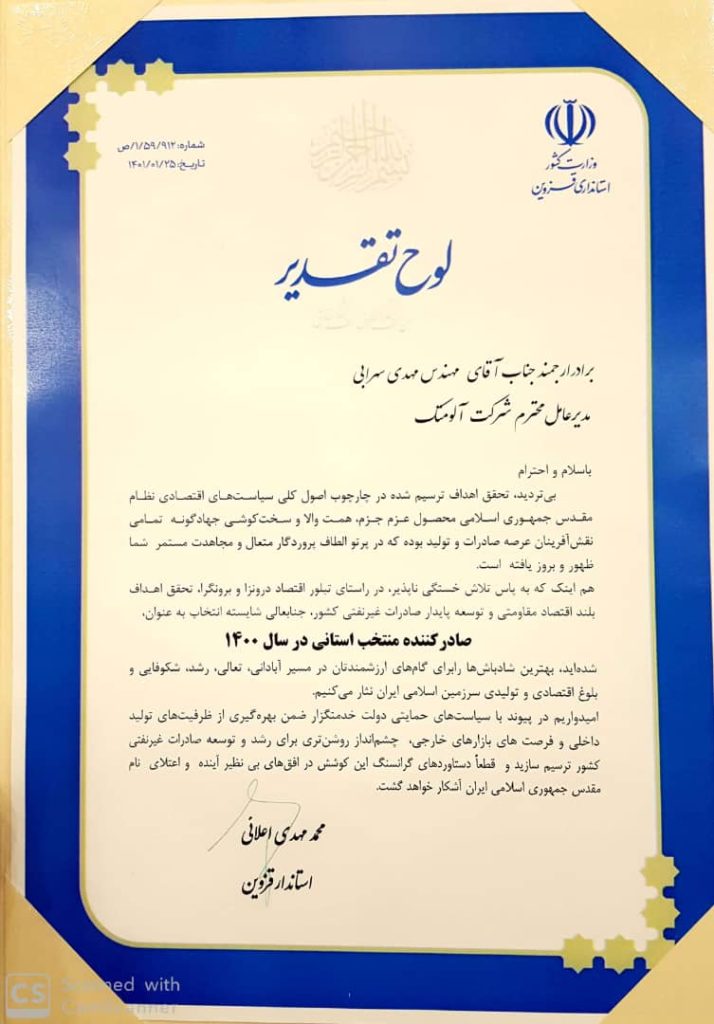 بسم الله الرحمن الرحیم
وزارت کشور
استانداری قزوین
شماره: ۱/۵۹/۹۱۲/ص
تاریخ: ۱۴۰۱/۰۱/۲۵
لوح تقدیر
برادر ارجمند جناب آقای مهندس مهدی سهرابی
مدیرعامل محترم شرکت آلومتک
باسلام و احترام
بی‌تردید، تحقق اهداف ترسیم شده در چارچوب اصول کلی سیاست‌های اقتصادی نظام
مقدس جمهوری اسلامی محصول عزم جزم، همت والا و سخت‌کوشی جهادگونه تمامی
نقش‌آفرینان عرصه صادرات و تولید بوده که در پرتو الطاف پروردگار متعال و مجاهدت مستمر شما
ظهور و بروز یافته است.
هم اینک که به پاس تلاش خستگی ناپذیر، در راستای تبلور اقتصاد درونزا و برونگرا، تحقق اهداف
بلند اقتصاد مقاومتی و توسعه پایدار صادرات غیرنفتی کشور، جنابعالی شایسته انتخاب به عنوان،
صادرکننده منتخب استانی در سال ۱۴۰۰
شده‌اید، بهترین شادباش‌ها رابرای گام‌های ارزشمندتان در مسیر آبادانی، تعالی، رشد، شکوفایی و
بلوغ اقتصادی و تولیدی سرزمین اسلامی ایران نثار می‌کنیم.
امیدواریم در پیوند با سیاست‌های حمایتی دولت خدمتگزار ضمن بهره‌گیری از ظرفیت‌های تولید
داخلی و فرصت های بازارهای خارجی، چشم‌انداز روشن‌تری برای رشد و توسعه صادرات غیرنفتی
کشور ترسیم سازید و قطعاً دستاوردهای گرانسنگ این کوشش در افق‌های بی نظیر آینده و اعتلای نام
مقدس جمهوری اسلامی ایران آشکار خواهد گشت.
محمد مهدی اعلائی
استاندار قزوین
CS Scanned with
CamScanner